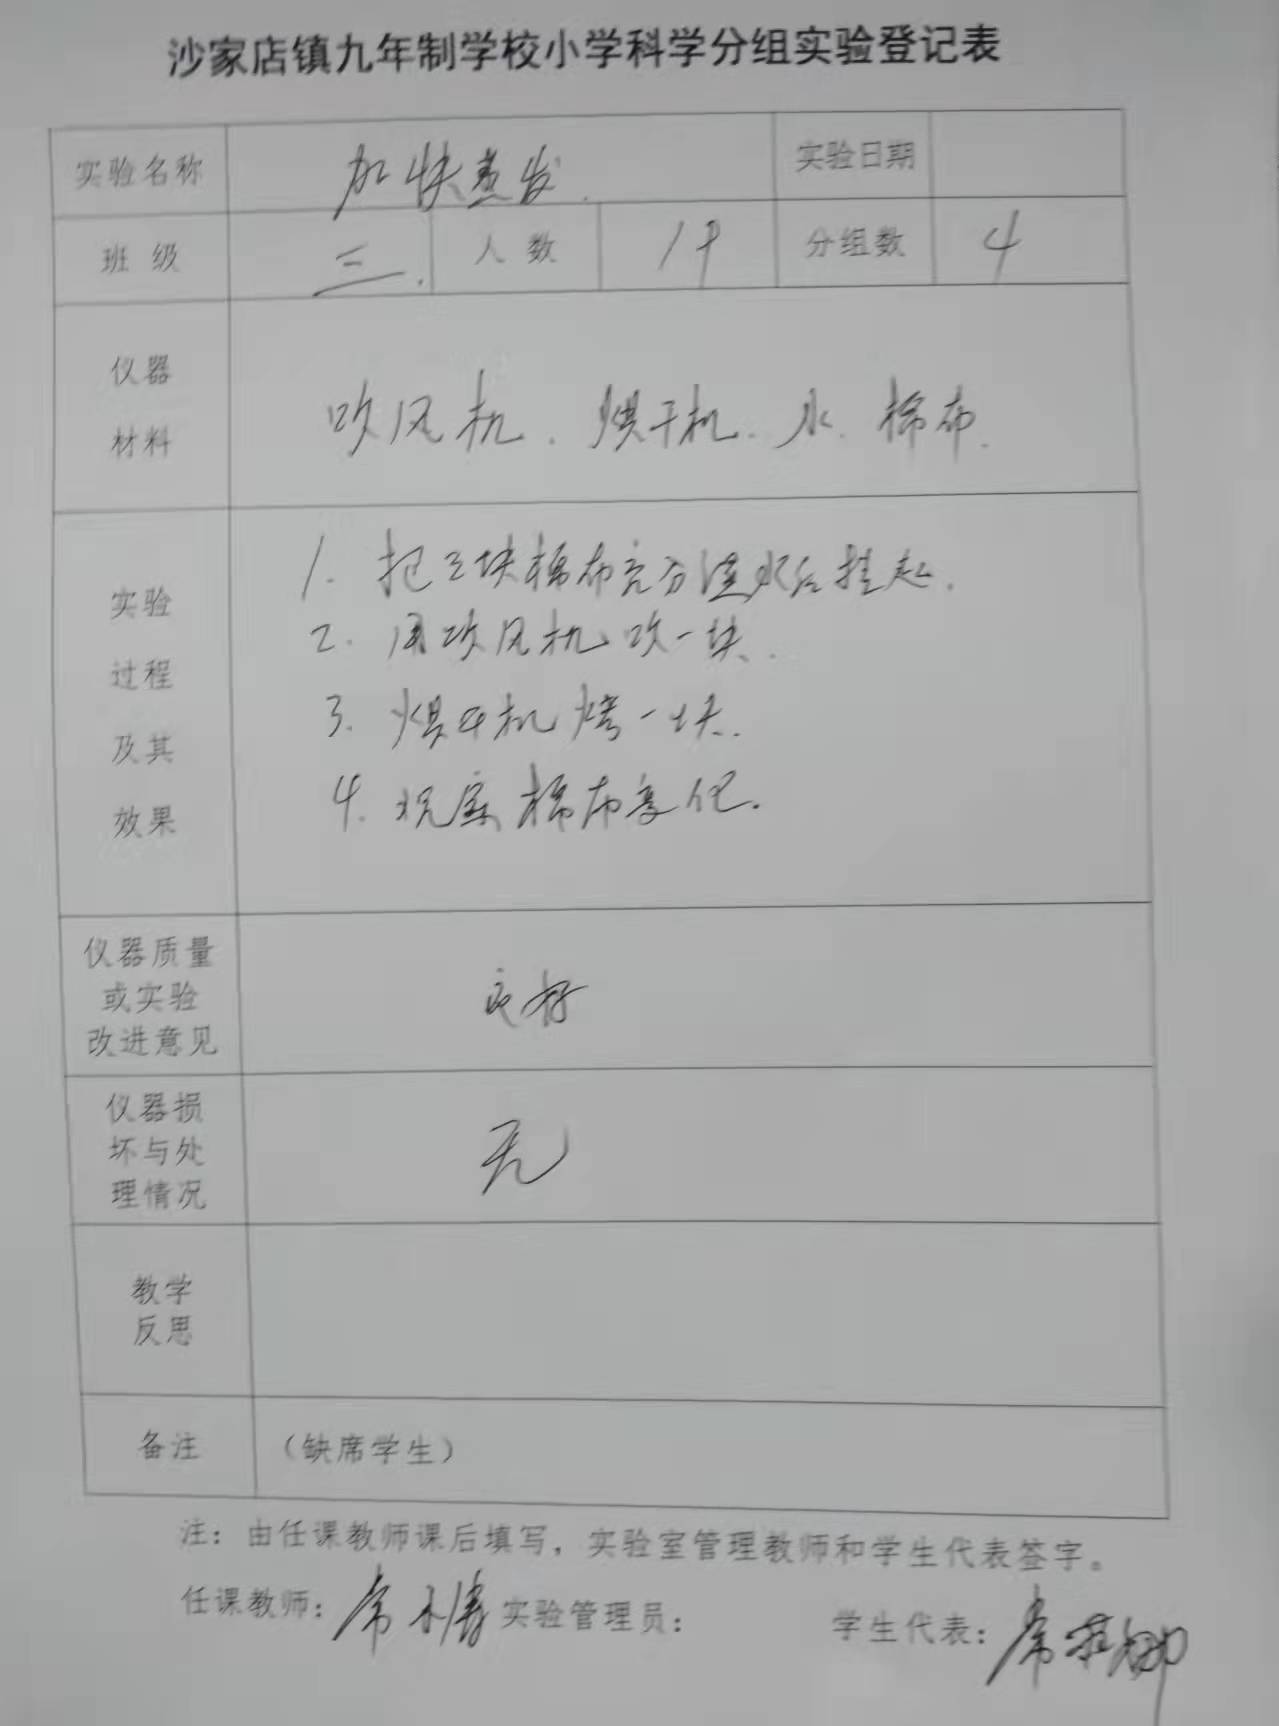 沙家店镇九年制学校小学科学分组实验登记表
实验名称 加快蒸发. 实验日期
班 级 三. 人 数 19 分组数 4
仪器
材料
吹风机、烘干机、水、棉布.
实验
过程
及其
效果
1. 把三块棉布充分湿水后挂起.
2. 用吹风机吹一块.
3. 烘干机烤一块.
4. 观察棉布变化.
仪器质量
或实验
改进意见
良好
仪器损
坏与处
理情况
无
教学
反思
备注 （缺席学生）
注：由任课教师课后填写，实验室管理教师和学生代表签字。
任课教师： 常 实验管理员： 学生代表： 常